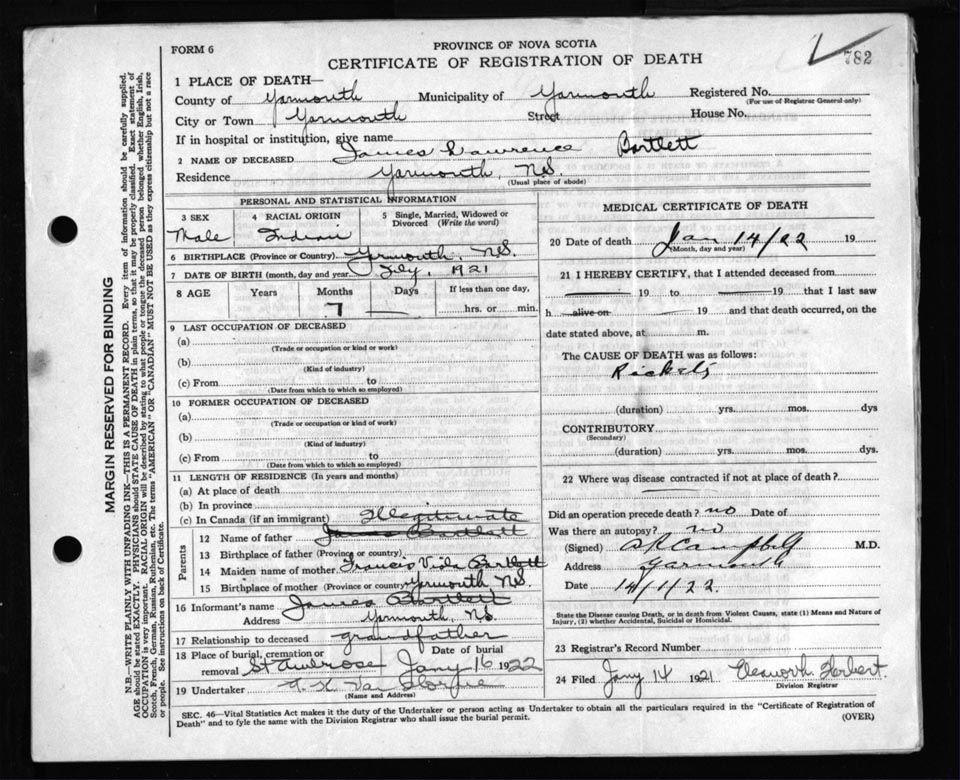 782
FORM 6
PROVINCE OF NOVA SCOTIA
CERTIFICATE OF REGISTRATION OF DEATH
MARGIN RESERVED FOR BINDING
N.B.—WRITE PLAINLY WITH UNFADING INK—THIS IS A PERMANENT RECORD. Every item of information should be carefully supplied.
AGE should be stated EXACTLY. PHYSICIANS should STATE CAUSE OF DEATH in plain terms, so that it may be properly classified. Exact statement of
OCCUPATION is very important. RACIAL ORIGIN will be described by stating to what people or tongue the deceased person belonged whether English, Irish,
Scotch, French, German, Russian, Ruthenian, etc. The terms "AMERICAN" OR "CANADIAN" MUST NOT BE USED as they express citizenship but not a race
or people. See instructions on back of Certificate.
1 PLACE OF DEATH—
County of Yarmouth Municipality of Yarmouth Registered No.
(For use of Registrar General only)
City or Town Yarmouth Street House No.
If in hospital or institution, give name
2 NAME OF DECEASED James Lawrence Bartlett
Residence Yarmouth, N.S.
(Usual place of abode)
PERSONAL AND STATISTICAL INFORMATION
3 SEX 4 RACIAL ORIGIN 5 Single, Married, Widowed or Divorced (Write the word)
Male Indian
6 BIRTHPLACE (Province or Country) Yarmouth, N.S.
7 DATE OF BIRTH (month, day and year) July, 1921
8 AGE Years Months Days If less than one day,
7 — hrs. or min.
9 LAST OCCUPATION OF DECEASED
(a)
(Trade or occupation or kind or work)
(b)
(Kind of industry)
(c) From to
(Date from which to which so employed)
10 FORMER OCCUPATION OF DECEASED
(a)
(Trade or occupation or kind of work)
(b)
(Kind of industry)
(c) From to
(Date from which to which so employed)
11 LENGTH OF RESIDENCE (In years and months)
(a) At place of death
(b) In province
(c) In Canada (if an immigrant) Illegitimate
Parents
12 Name of father James Bartlett
13 Birthplace of father (Province or country)
14 Maiden name of mother Frances Viola Bartlett
15 Birthplace of mother (Province or country) Yarmouth N.S.
16 Informant's name James Bartlett
Address Yarmouth, N.S.
17 Relationship to deceased grandfather
18 Place of burial, cremation or removal St Ambrose Date of burial Jany 16 1922
19 Undertaker
(Name and Address)
MEDICAL CERTIFICATE OF DEATH
20 Date of death Jan 14/22 19
(Month, day and year)
21 I HEREBY CERTIFY, that I attended deceased from
19 to 19 that I last saw
h alive on 19 and that death occurred, on the
date stated above, at m.
The CAUSE OF DEATH was as follows:
Rickets
(duration) yrs. mos. dys
CONTRIBUTORY
(Secondary)
(duration) yrs. mos. dys.
22 Where was disease contracted if not at place of death?
Did an operation precede death? no Date of
Was there an autopsy? no
(Signed) Campbell M.D.
Address Yarmouth
Date 14/1/22.
State the Disease causing Death, or in death from Violent Causes, state (1) Means and Nature of
Injury, (2) whether Accidental, Suicidal or Homicidal.
23 Registrar's Record Number
24 Filed Jany 14 1921 Herbert
Division Registrar
SEC. 46—Vital Statistics Act makes it the duty of the Undertaker or person acting as Undertaker to obtain all the particulars required in the "Certificate of Registration of
Death" and to fyle the same with the Division Registrar who shall issue the burial permit. (OVER)